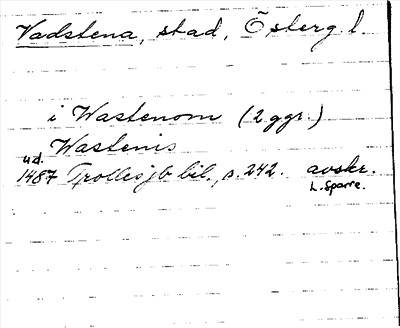 Vadstena, stad, Österg l
i Wastenom (2 ggr.)
Wastenis
u.d.
1487 Trolles jb bil., s. 242. avskr.
L. Sparre.